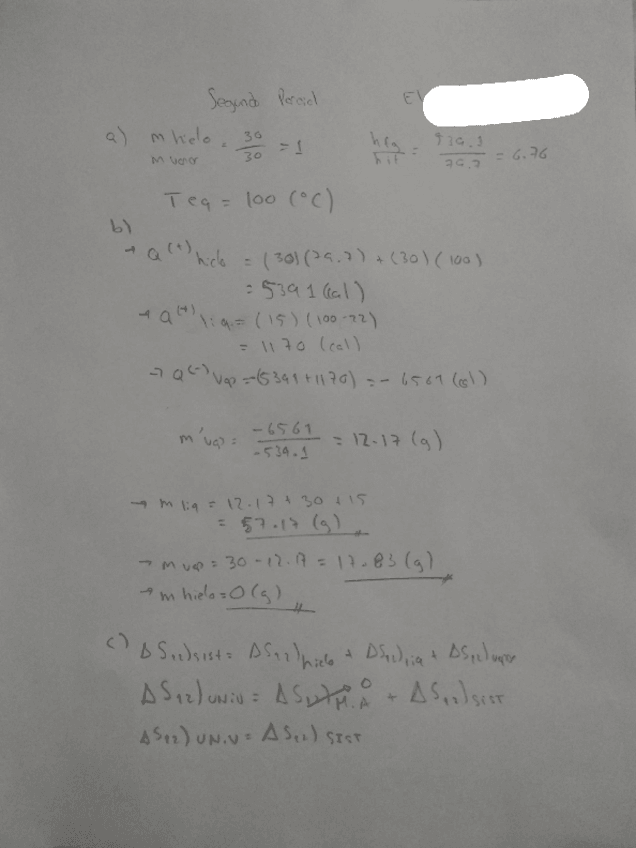 Segundo Parcial El
a) m hielo / m vapor = 30/30 = 1 hfg/hif = 539.1/79.7 = 6.76
Teq = 100 (°C)
b)
→ Q(+) hielo = (30)(79.7) + (30)(100)
= 5391 (cal)
→ Q(+) liq = (15)(100-22)
= 1170 (cal)
→ Q(-) vap = -(5391+1170) = -6561 (cal)
m'vap = -6561/-539.1 = 12.17 (g)
→ m liq = 12.17 + 30 + 15
= 57.17 (g)
→ m vap = 30 - 12.17 = 17.83 (g)
→ m hielo = 0 (g)
c) ΔS12)sist = ΔS12)hielo + ΔS12)liq + ΔS12)vapor
ΔS12)UNIV = ΔS12)M.A 0 + ΔS12)SIST
ΔS12)UNIV = ΔS12)SIST